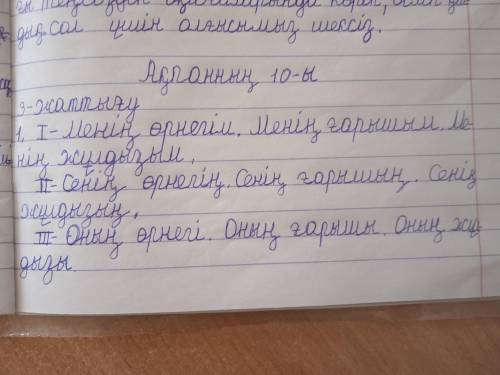 дық. Сол үшін алғысымыз шексіз.
Ақпанның 10-ы
9-жаттығу
1. I-Менің өрнегім. Менің ғарышым. Ме-
нің жұлдызым.
II-Сенің өрнегің. Сенің ғарышың. Сенің
жұлдызың.
III-Оның өрнегі. Оның ғарышы. Оның жұл-
дызы.